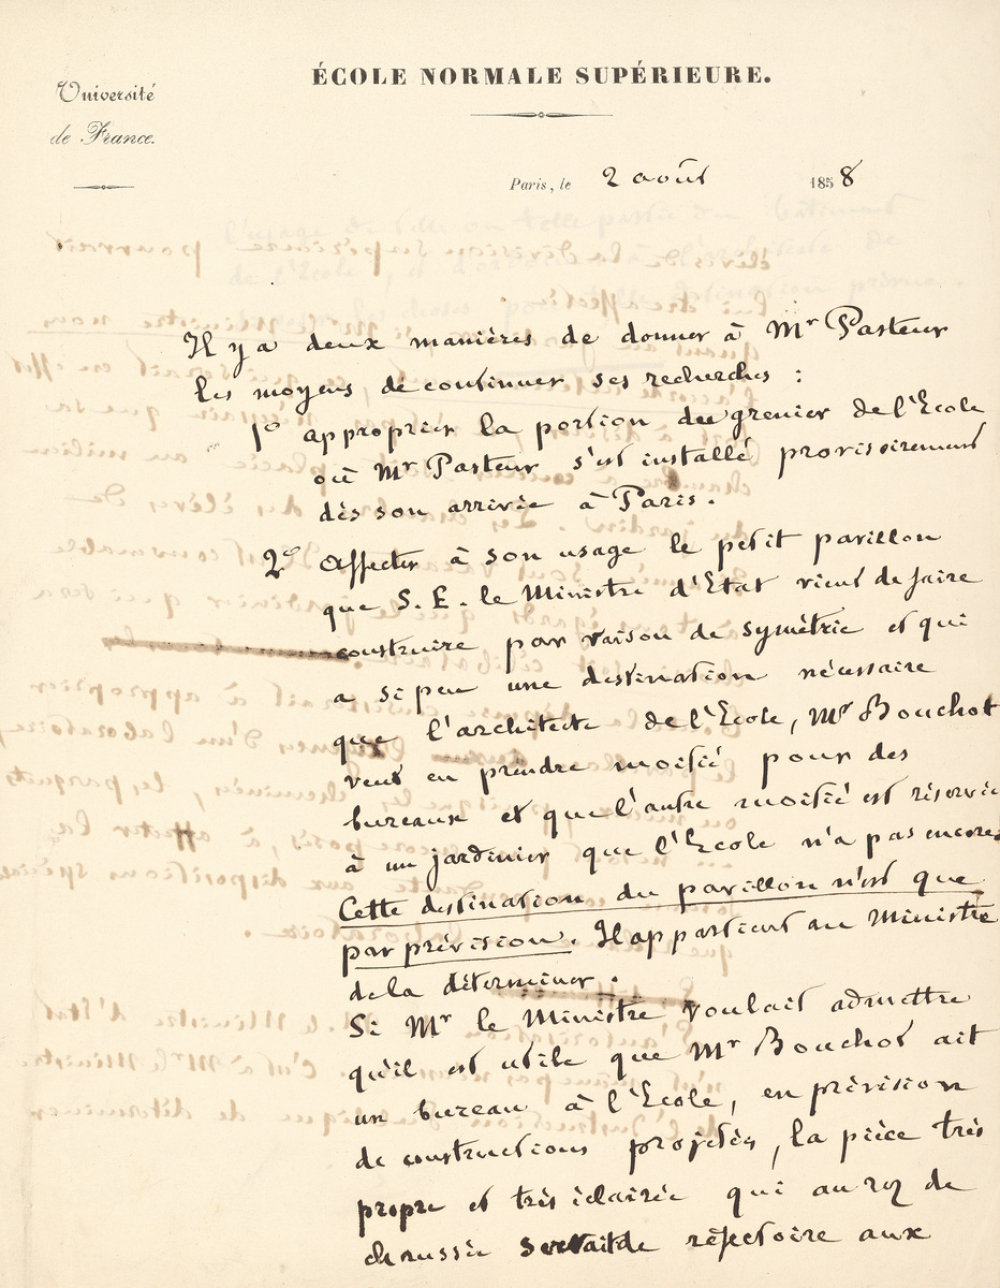 ÉCOLE NORMALE SUPÉRIEURE.
Université
de France.
Paris, le 2 août 1858
Il y a deux manières de donner à Mr Pasteur
les moyens de continuer ses recherches :
1° approprier la portion du grenier de l'Ecole
où Mr Pasteur s'est installé provisoirement
dès son arrivée à Paris.
2° affecter à son usage le petit pavillon
que S. E. le Ministre d'Etat vient de faire
construire par raison de symétrie et qui
a si peu une destination nécessaire
que l'architecte de l'Ecole, Mr Bouchot
veut en prendre moitié pour des
bureaux et que l'autre moitié est réservée
à un jardinier que l'Ecole n'a pas encore.
Cette destination du pavillon n'est que
par prévision. Il appartient au Ministre
de la déterminer.
Si Mr le Ministre voulait admettre
qu'il est utile que Mr Bouchot ait
un bureau à l'Ecole, en prévision
de constructions projetées, la pièce très
propre et très éclairée qui au rez de
chaussée servait de réfectoire aux